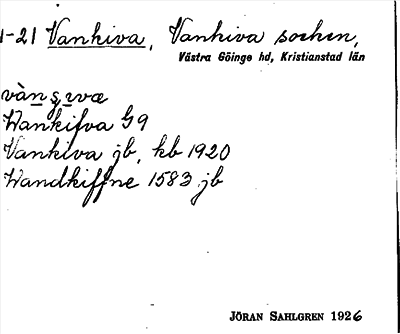 1-21 Vankiva, Vankiva socken,
Västra Göinge hd, Kristianstad län
Wankifva G9
Vankiva jb, kb 1920
Wandkiffne 1583 jb
JÖRAN SAHLGREN 1926